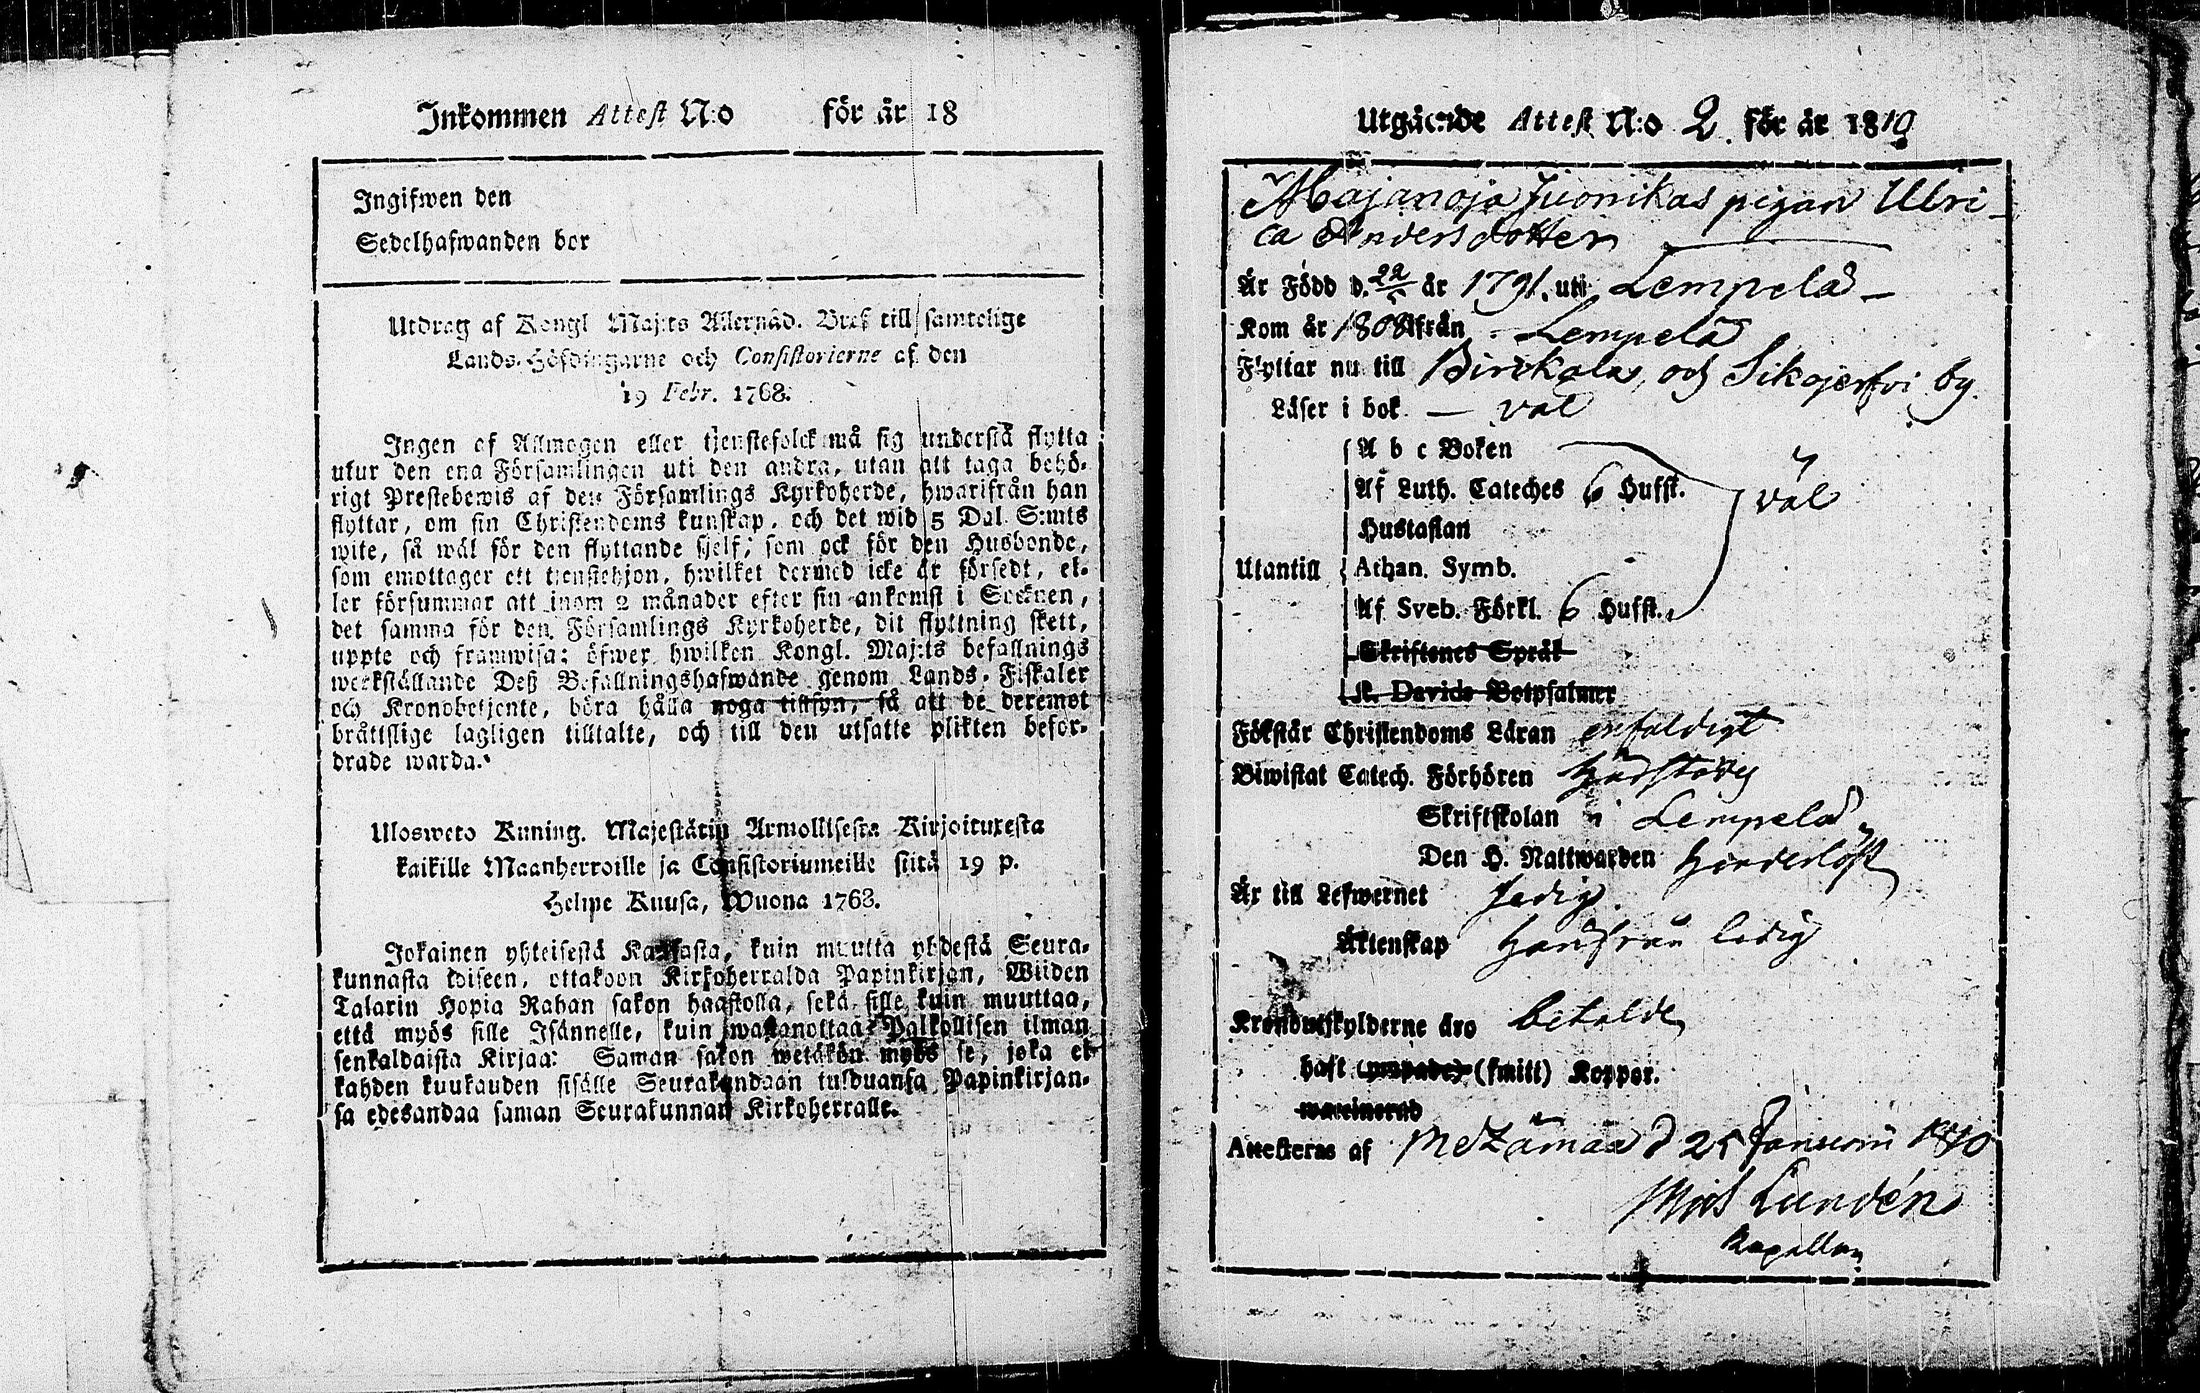 Inkommen Attest N:o för år 18
Ingifwen den
Sedelhafwanden bor
Utdrag af Kongl Maj:ts Allernåd. Bref till samtelige
Lands-Höfdingarne och Consistorierne af den
19 Febr. 1768.
Ingen af Allmogen eller tjenstefolck må sig understå flytta
utur den ena Församlingen uti den andra, utan att taga behö-
rigt Prestebewis af den Församlings Kyrkoherde, hwarifrån han
flyttar, om sin Christendoms kunskap, och det wid 5 Dal. S:mts
wite, så wäl för den flyttande sjelf, som ock för den Husbonde,
som emottager ett tjenstehjon, hwilket dermed icke är försedt, el-
ler försummar att inom 2 månader efter sin ankomst i Socknen,
det samma för den Församlings Kyrkoherde, dit flyttning skett,
uppte och framwisa: öfwer hwilken Kongl. Maj:ts befallnings
werkställande Deß Befallningshafwande genom Lands-Fiskaler
och Kronobetjente, böra hålla noga tillsyn, så att de deremot
bråttslige lagligen tilltalte, och till den utsatte plikten befor-
drade warda.
Ulosweto Kuning. Majestätin Armollisesta Kirjoituxesta
kaikille Maanherroille ja Consistoriumeille siitä 19 p.
Helme Kuusa, Wuona 1768.
Jokainen yhteisestä Kansasta, kuin muutta yhdestä Seura-
kunnasta toiseen, ottakoon Kirkoherralda Papinkirjan, Wiiden
Talarin Hopia Rahan sakon haastolla, sekä sille kuin muuttaa,
että myös sille Isännelle, kuin wastanottaa Palkollisen ilman
senkaldaista Kirjaa: Saman sakon wetäkön myös se, joka ei
kahden kuukauden sisälle Seurakundaan tulduansa Papinkirjan-
sa edesandaa saman Seurakunnan Kirkoherralle.
Utgående Attest N:o 2. för år 1810
Majanoja Juonikas pigan Ulri-
ca Andersdotter
Är Född d. 22/5 år 1791. uti Lempelä
Kom år 1808 ifrån Lempelä
Flyttar nu till Birckala, och Sikojerfvi by.
Läser i bok - väl
A b c Boken
Af Luth. Cateches 6 Hufst. väl
Hustaflan
Utantill Athan. Symb.
Af Sveb. Förkl. 6 Hufst.
Skriftenes Språk
K. Davids Botpsalmer
Förstår Christendoms Läran enfaldigt
Biwistat Catech. Förhören
Skriftskolan i Lempelä
Den H. Nattwarden
Är till Lefwernet
Äktenskap ledig
Kronoutskylderne äro betalde
haft (ympade) (smitt) Koppor.
waccinerad
Attesteras af Metzämaa d 25 Januarii 1810
Lundén
Kapellan